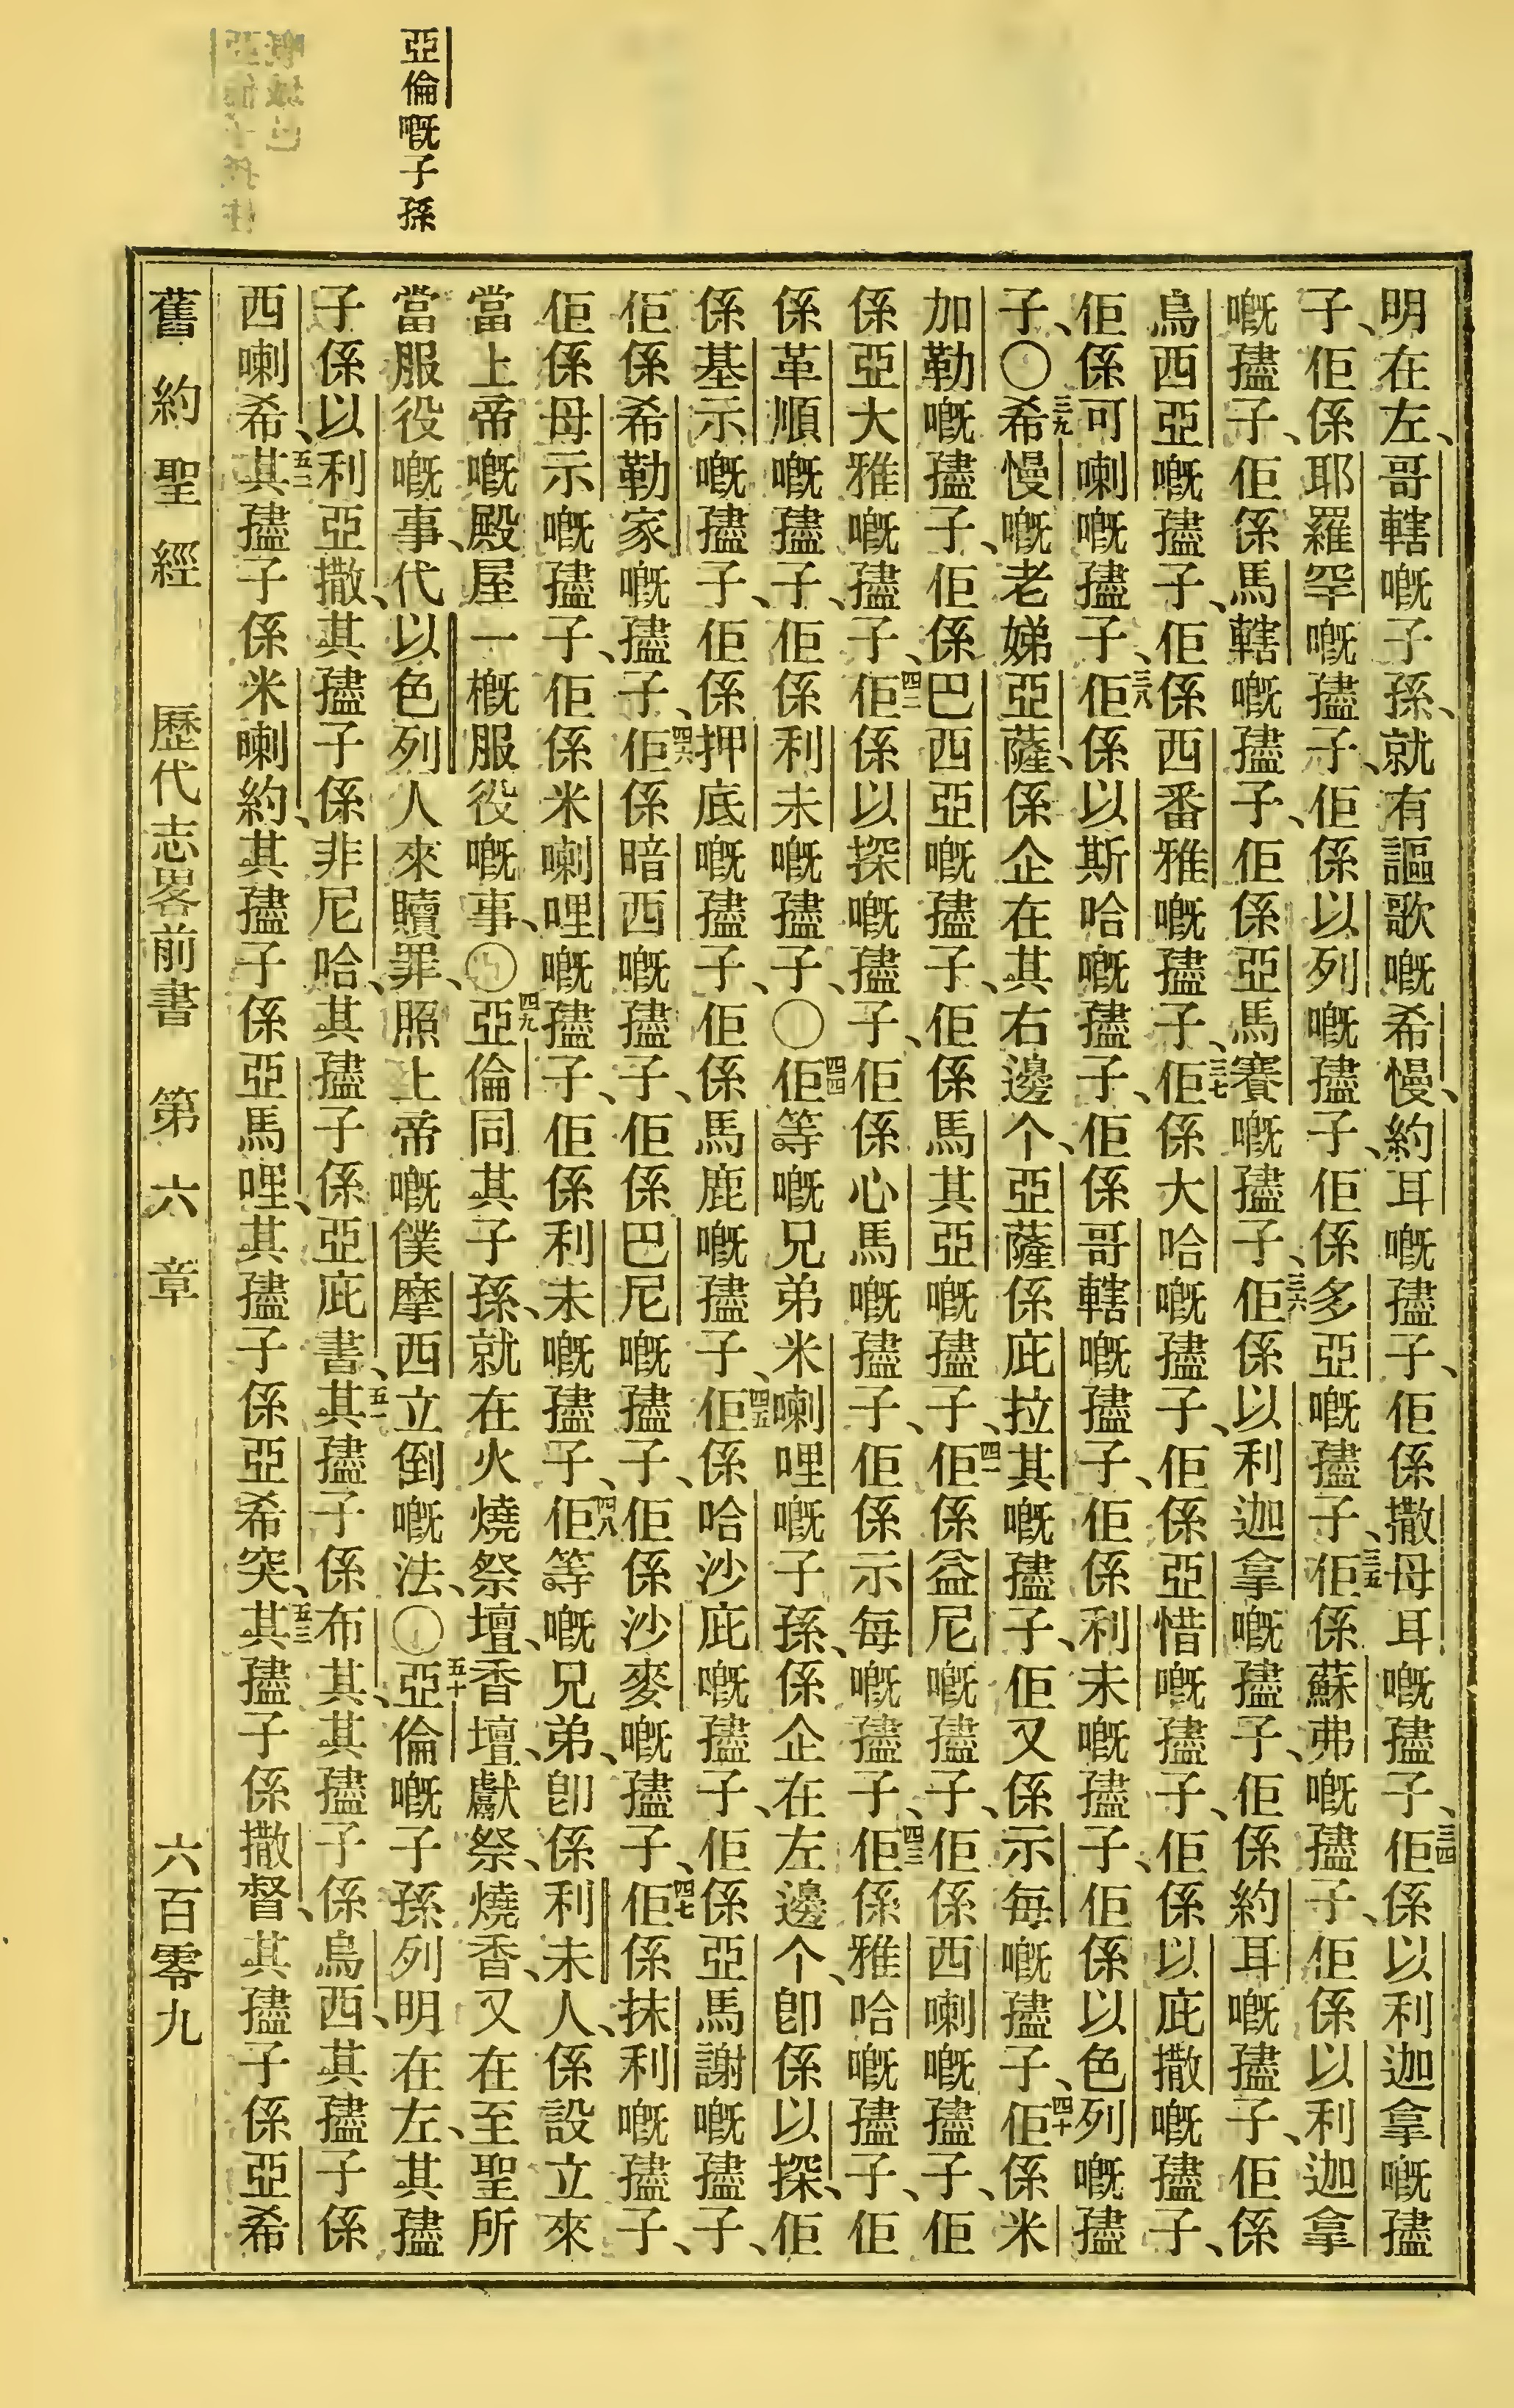 亞倫嘅子孫
明在左、哥轄嘅子孫、就有謳歌嘅希慢、約耳嘅孻子、佢係撒母耳嘅孻子、三四佢係以利迦拿嘅孻
子、佢係耶羅罕嘅孻子、佢係以列嘅孻子、佢係多亞嘅孻子、三五佢係蘇弗嘅孻子、佢係以利迦拿
嘅孻子、佢係馬轄嘅孻子、佢係亞馬賽嘅孻子、三六佢係以利迦拿嘅孻子、佢係約耳嘅孻子、佢係
烏西亞嘅孻子、佢係西番雅嘅孻子、三七佢係大哈嘅孻子、佢係亞惜嘅孻子、佢係以庇撒嘅孻子、
佢係可喇嘅孻子、三八佢係以斯哈嘅孻子、佢係哥轄嘅孻子、佢係利未嘅孻子、佢係以色列嘅孻
子、〇三九希慢嘅老娣亞薩、係企在其右邊个、亞薩係庇拉其嘅孻子、佢又係示每嘅孻子、四十佢係米
加勒嘅孻子、佢係巴西亞嘅孻子、佢係馬其亞嘅孻子、四一佢係益尼嘅孻子、佢係西喇嘅孻子、佢
係亞大雅嘅孻子、四二佢係以探嘅孻子、佢係心馬嘅孻子、佢係示每嘅孻子、四三佢係雅哈嘅孻子、佢
係革順嘅孻子、佢係利未嘅孻子、〇四四佢等嘅兄弟米喇哩嘅子孫、係企在左邊个、卽係以探、佢
係基示嘅孻子、佢係押底嘅孻子、佢係馬鹿嘅孻子、四五佢係哈沙庇嘅孻子、佢係亞馬謝嘅孻子、
佢係希勒家嘅孻子、四六佢係暗西嘅孻子、佢係巴尼嘅孻子、佢係沙麥嘅孻子、四七佢係抹利嘅孻子、
佢係母示嘅孻子、佢係米喇哩嘅孻子、佢係利未嘅孻子、四八佢等嘅兄弟、卽係利未人、係設立來
當上帝嘅殿屋一概服役嘅事、〇四九亞倫同其子孫、就在火燒祭壇、香壇、獻祭、燒香、又在至聖所
當服役嘅事、代以色列人來贖罪、照上帝嘅僕摩西立倒嘅法、〇五十亞倫嘅子孫列明在左、其孻
子係以利亞撒、其孻子係非尼哈、其孻子係亞庇書、五一其孻子係布其、其孻子係烏西、其孻子係
西喇希、五二其孻子係米喇約、其孻子係亞馬哩、其孻子係亞希突、五三其孻子係撒督、其孻子係亞希
舊約聖經 歷代志畧前書 第六章 六百零九